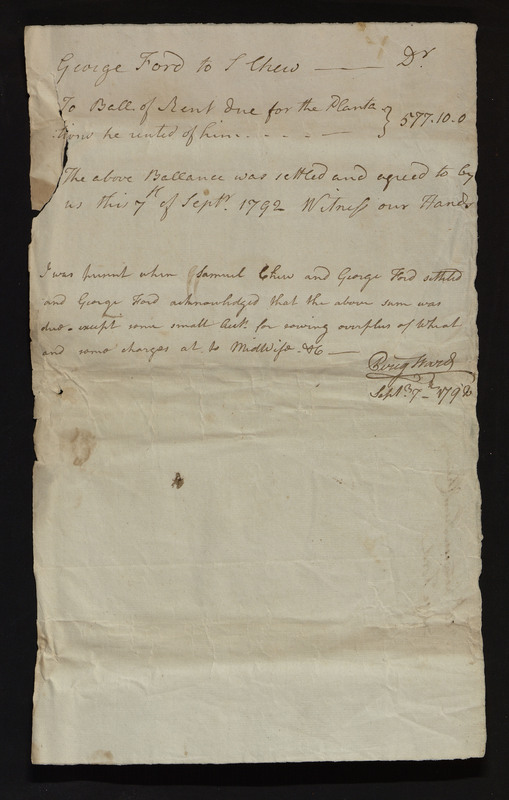 George Ford to S Chew —— Dr
To Ball. of Rent due for the Planta
tion he rented of him - - - - — } 577.10.0
The above Ballance was settled and agreed to by
us this 7th of Septr. 1792 Witness our Hands
I was present when Samuel Chew and George Ford settled
and George Ford acknowledged that the above sum was
due - except some small Act. for sowing overplus of Wheat
and some charges at to Midwife &c —
Benj Ward
Sept. 7th 1792